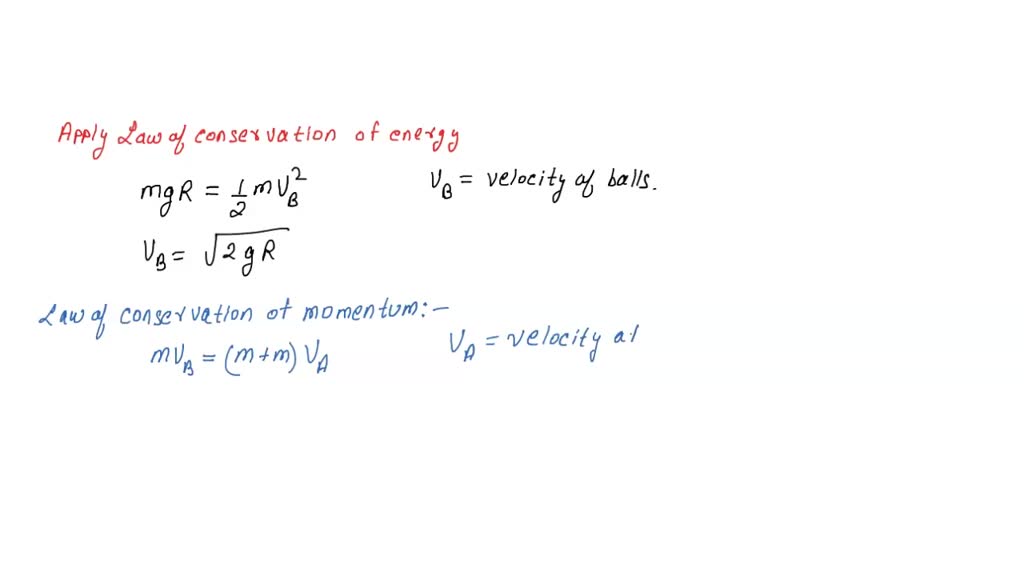 Apply Law of conservation of energy
mgR = 1/2 mV_B^2
V_B = velocity of balls.
V_B = √2gR
Law of conservation of momentum:-
mV_B = (m+m) V_A
V_A = velocity at